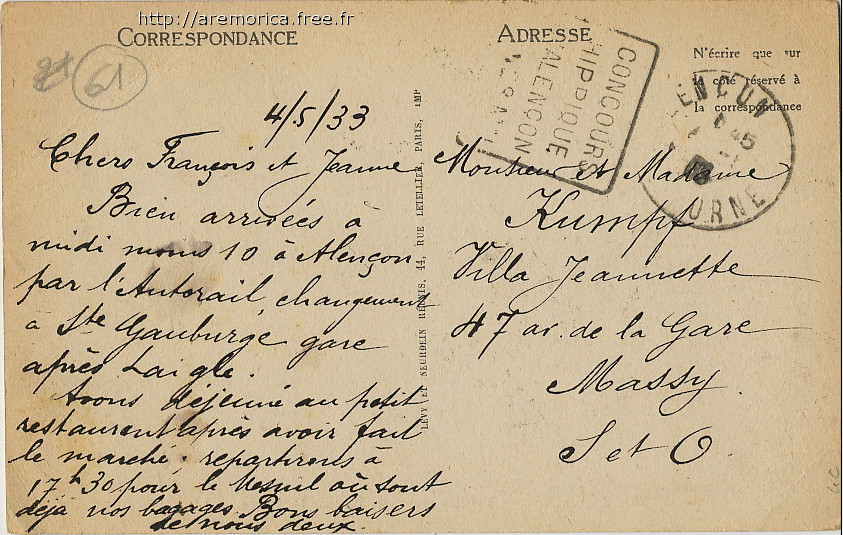 http://aremorica.free.fr
CORRESPONDANCE
61
4/5/33
Chers François et Jeanne
Bien arrivées à
midi moins 10 à Alençon
par l'Autorail, changement
à Ste Gauburge gare
après Laigle.
Avons déjeuné au petit
restaurant après avoir fait
le marché. repartirons à
17h30 pour le Mesnil où sont
déjà nos bagages Bons baisers
de nous deux.
LÉVY ET NEURDEIN RÉUNIS, 44, RUE LETELLIER, PARIS, IMP
ADRESSE
N'écrire que sur
le côté réservé à
la correspondance
CONCOURS
HIPPIQUE
ALENÇON
ENCON
45
ORNE
Monsieur et Madame
Kumpf
Villa Jeannette
47 av. de la Gare
Massy
S et O.